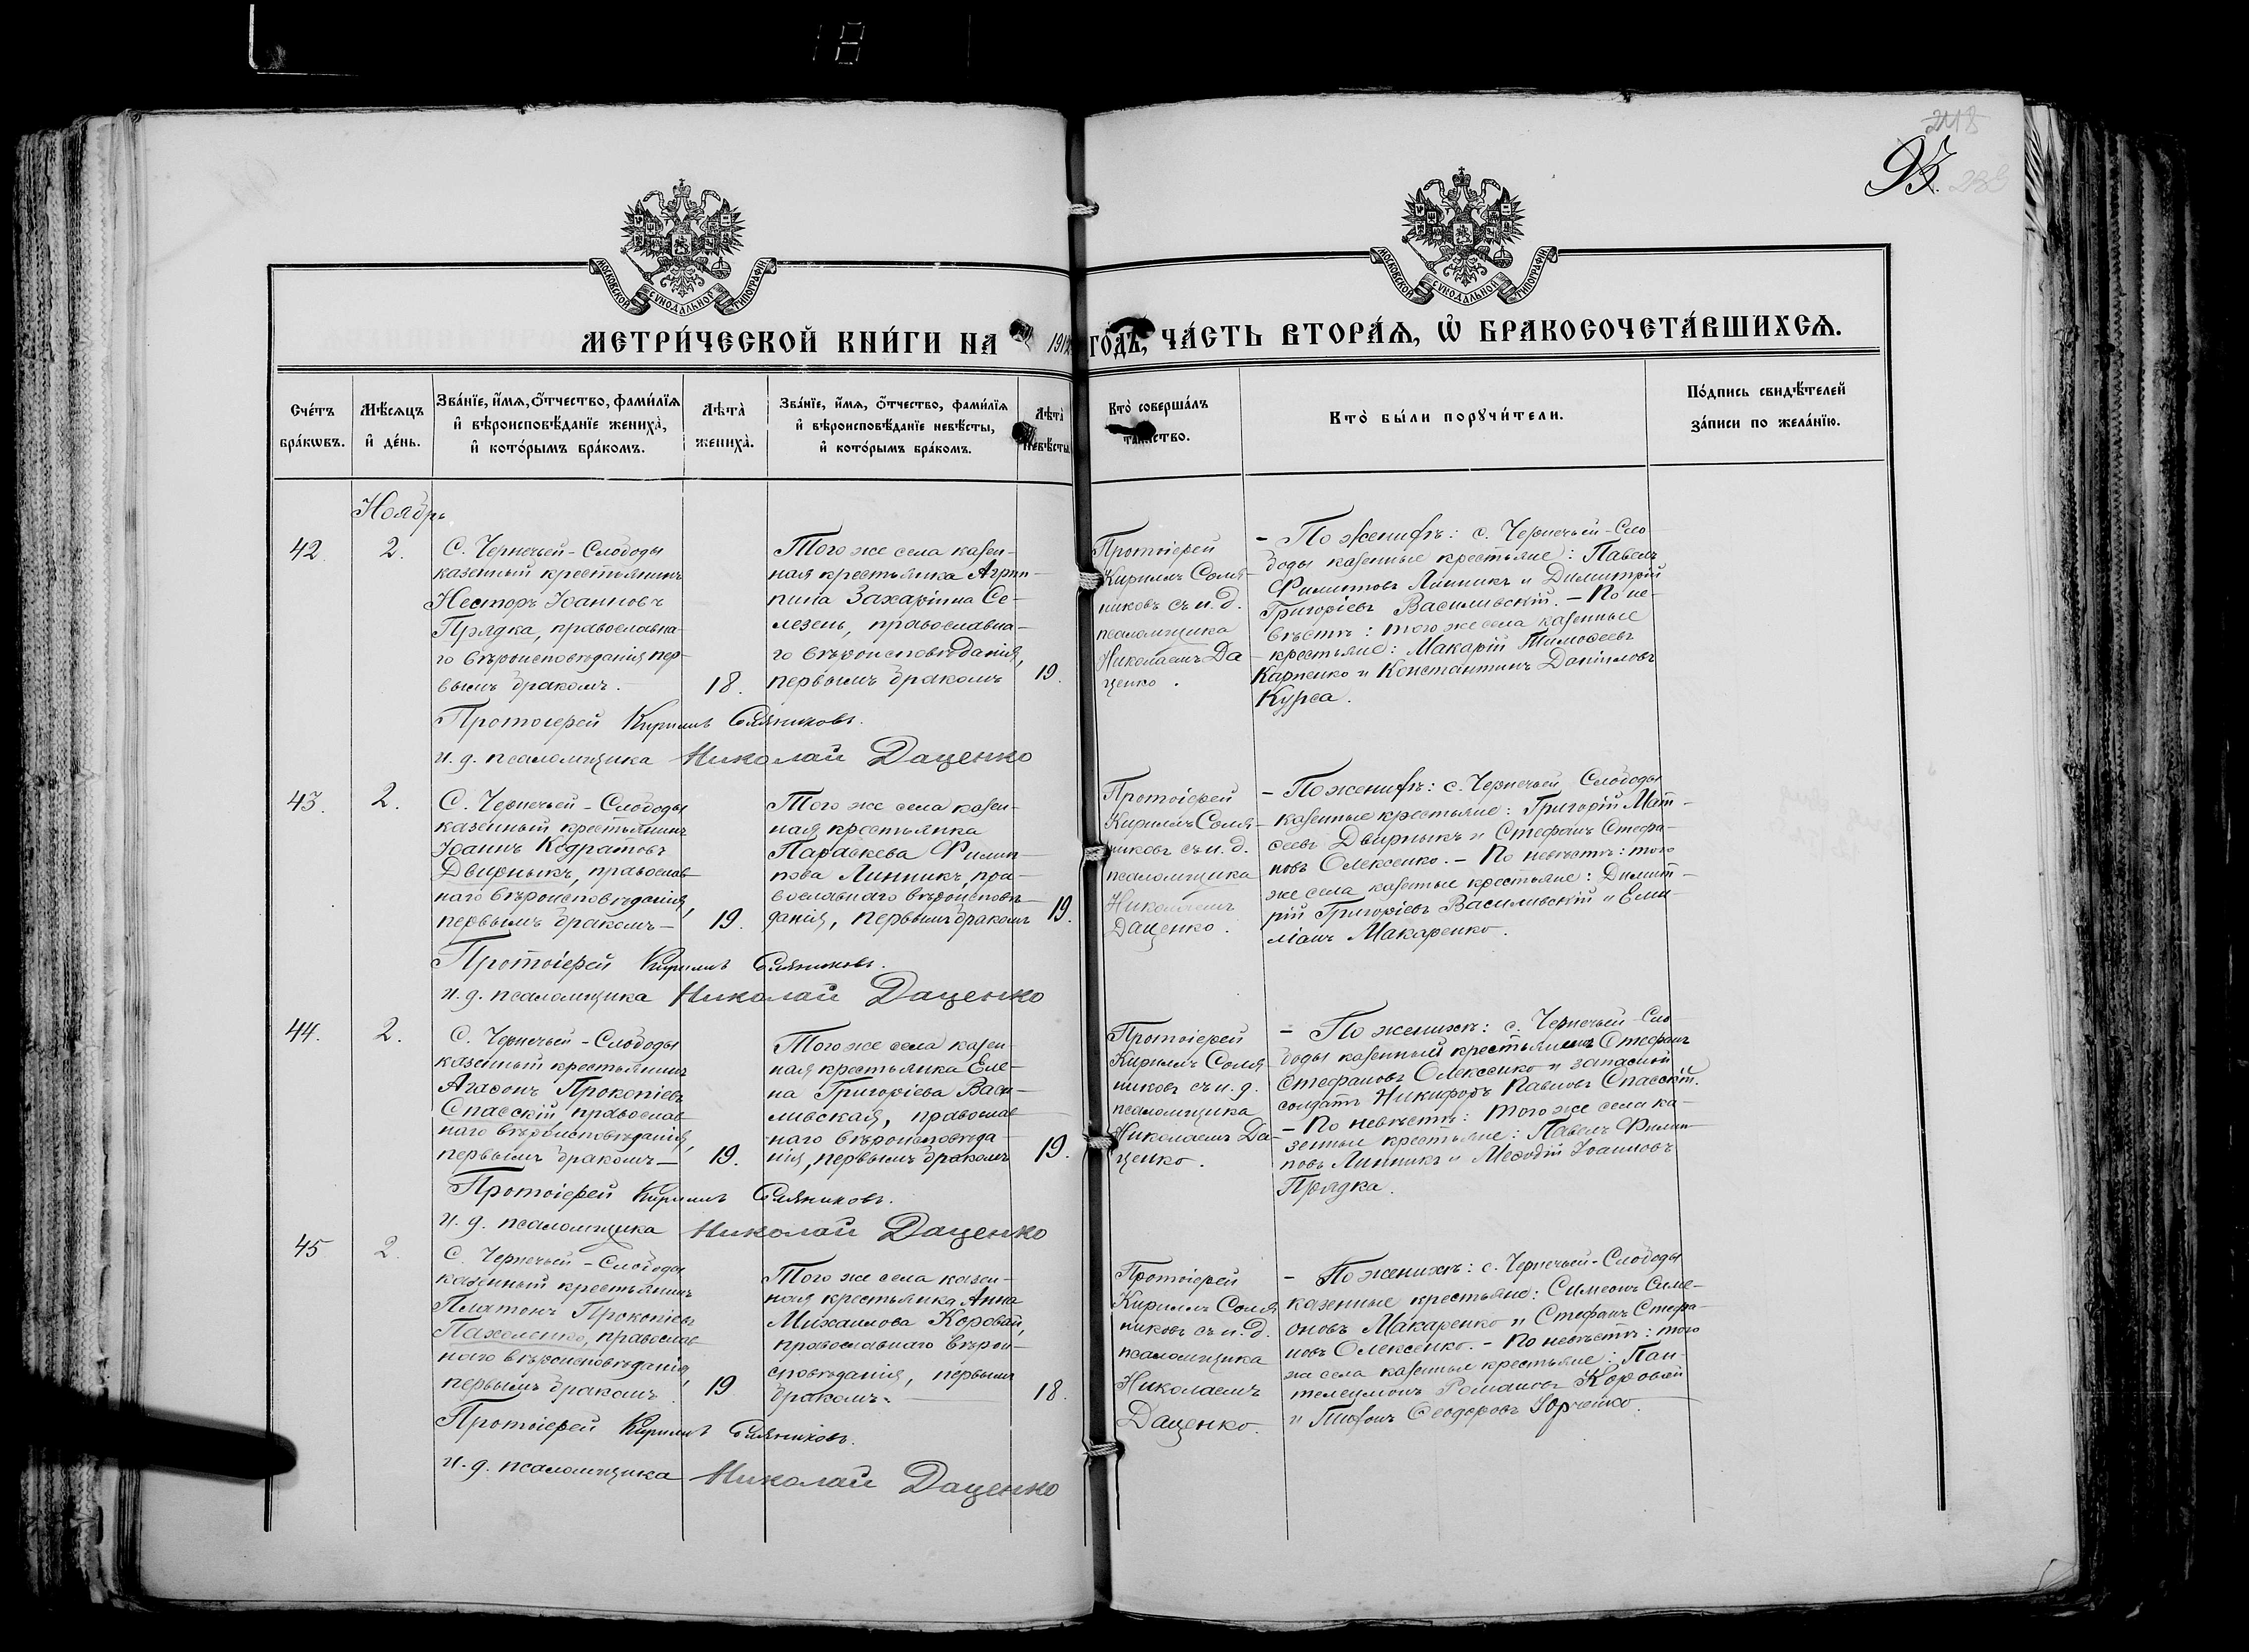 18
218
93.
МОСКОВСКОЙ СѴНОДАЛЬНОЙ ТИПОГРАФІИ.
МОСКОВСКОЙ СѴНОДАЛЬНОЙ ТИПОГРАФІИ.
МЕТРИ́ЧЕСКОЙ КНИ́ГИ НА
ГО́ДЪ, ЧА́СТЬ ВТОРА́Ѧ, Ѽ БРАКОСОЧЕТА́ВШИХСѦ.
Сче́тъ
бра́кѡвъ.
Мѣ́сѧцъ
и҆ де́нь.
Зва́нїе, и҆́мѧ, ѻ҆́тчество, фами́лїѧ
и҆ вѣроисповѣ́данїе жениха̀,
и҆ кото́рымъ бра́комъ.
Лѣта̀
жениха̀.
Зва́нїе, и҆́мѧ, ѻ҆́тчество, фами́лїѧ
и҆ вѣроисповѣ́данїе невѣ́сты,
и҆ кото́рымъ бра́комъ.
Лѣта̀
невѣ́сты.
Кто̀ соверша́лъ
та́инство.
Кто̀ бы́ли порꙋчи́тели.
По́дпись свидѣ́телей
за́писи по жела́нїю.
Ноябрь
42.
2.
С. Чернечьей-Слободы
казенный крестьянинъ
Несторъ Іоанновъ
Прядка, православна-
го вѣроисповѣданія пер-
вымъ бракомъ.
18.
Того же села казен-
ная крестьянка Агрип-
пина Захаріина Се-
лезень, православна-
го вѣроисповѣданія,
первымъ бракомъ
19.
Протоіерей
Кириллъ Соля-
никовъ съ и. д.
псаломщика
Николаемъ Да
ценко.
- По женихѣ: с. Чернечьей-Сло
боды казенные крестьяне: Павелъ
Филиповъ Линникъ и Димитрій
Григоріевъ Василивскій. - По не-
вѣстѣ: того же села казенные
крестьяне: Макарій Тимоѳеевъ
Карпенко и Константинъ Даніиловъ
Курса.
Протоіерей Кириллъ Соляниковъ.
и. д. псаломщика Николай Даценко
43.
2.
С. Чернечьей-Слободы
казенный крестьянинъ
Іоаннъ Кодратовъ
Двирныкъ, православ
наго вѣроисповѣданія,
первымъ бракомъ-
19.
Того же села казен-
ная крестьянка
Параскева Филип-
пова Линникъ, пра-
вославнаго вѣроисповѣ-
данія, первымъ бракомъ
19.
Протоіерей
Кириллъ Соля-
никовъ съ и. д.
псаломщика
Николаемъ
Даценко.
- По женихѣ: с. Чернечьей Слободы
казенные крестьяне: Григорій Мат-
сеевъ Двирныкъ и Стефанъ Стефа-
новъ Олексенко. - По невѣстѣ: того
же села казенные крестьяне: Димит-
рій Григоріевъ Василивскій и Еми-
ліанъ Макаренко.
Протоіерей Кириллъ Соляниковъ.
и. д. псаломщика Николай Даценко
44.
2.
С. Чернечьей-Слободы
казенный крестьянинъ
Агаѳонъ Прокопіевъ
Спасскій православ
наго вѣроисповѣданія,
первымъ бракомъ-
19.
Того же села казен
ная крестьянка Еле-
на Григоріева Васи-
ливская, православ
наго вѣроисповѣда-
нія, первымъ бракомъ
19.
Протоіерей
Кириллъ Соля
никовъ съ и. д.
псаломщика
Николаемъ Да-
ценко.
- По женихѣ: с. Чернечьей-Сло-
боды казенный крестьянинъ Стефанъ
Стефановъ Олексенко и запасной
солдатъ Никифоръ Павловъ Спасскій.
- По невѣстѣ: того же села ка-
зенные крестьяне: Павелъ Филип-
повъ Линникъ и Меѳодій Іоанновъ
Прядка.
Протоіерей Кириллъ Соляниковъ.
и. д. псаломщика Николай Даценко
45
2.
С. Чернечьей-Слободы
казенный крестьянинъ
Платонъ Прокопіевъ
Пахоленко, православ
наго вѣроисповѣданія,
первымъ бракомъ
19
Того же села казен-
ная крестьянка Анна
Михаилова Коровай,
православнаго вѣрои-
сповѣданія, первымъ
бракомъ.
18.
Протоіерей
Кириллъ Соля
никовъ съ и. д.
псаломщика
Николаемъ
Даценко.
- По женихѣ: с. Чернечьей-Слободы
казенные крестьяне: Симеонъ Симе-
оновъ Макаренко и Стефанъ Стефа-
новъ Олексенко. - По невѣстѣ: того
же села казенные крестьяне: Пан-
телеимонъ Романовъ Коровай
и Тихонъ Ѳеодоровъ Юрченко.
Протоіерей Кириллъ Соляниковъ.
и. д. псаломщика Николай Даценко